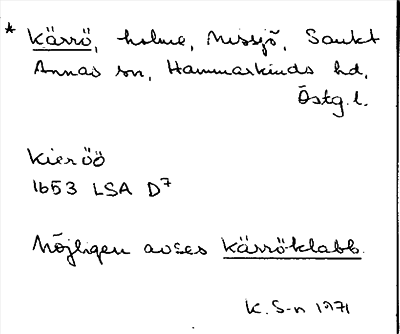 * Kärrö, holme, Missjö, Sankt
Annas sn, Hammarkinds hd,
Östg. l.
Kieröö
1653 LSA D7
Möjligen avses Kärröklabb.
K. S-n 1971